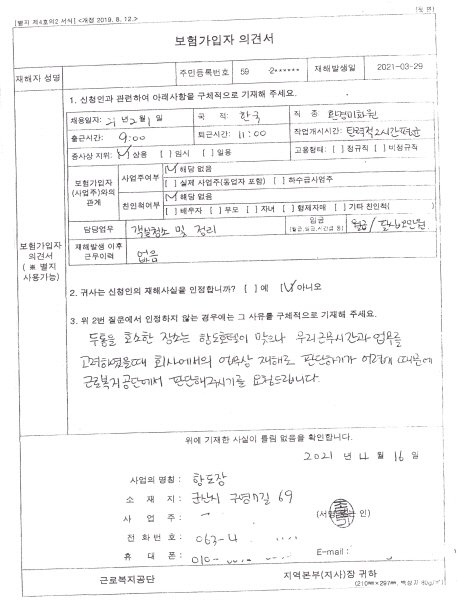 [별지 제4호의2 서식] <개정 2019. 8. 12.>
보험가입자 의견서
재해자 성명
주민등록번호 59 2******
재해발생일 2021-03-29
보험가입자 의견서 (※ 별지 사용가능)
1. 신청인과 관련하여 아래사항을 구체적으로 기재해 주세요.
채용일자: 21년 2월 1일 국 적: 한국 직 종: 환경미화원
출근시간: 9:00 퇴근시간: 11:00 작업개시시간: 탄력적2시간
종사상 지위: [✓] 상용 [ ] 임시 [ ] 일용 고용형태: [ ] 정규직 [ ] 비정규직
보험가입자 (사업주)와의 관계
사업주여부 [✓] 해당 없음
[ ] 실제 사업주(동업자 포함) [ ] 하수급사업주
친인척여부 [✓] 해당 없음
[ ] 배우자 [ ] 부모 [ ] 자녀 [ ] 형제자매 [ ] 기타 친인척( )
담당업무 객실청소 및 정리 임금 월급/
재해발생 이후 근무이력 없음
2. 귀사는 신청인의 재해사실을 인정합니까? [ ] 예 [✓] 아니오
3. 위 2번 질문에서 인정하지 않는 경우에는 그 사유를 구체적으로 기재해 주세요.
두통을 호소한 장소는 항도호텔이 맞으나 우리근무시간과 업무를
고려하였을때 회사에서의 업무상 재해로 판단하기가 어렵기 때문에
근로복지공단에서 판단해주시기를 요청드립니다.
위에 기재한 사실이 틀림 없음을 확인합니다.
2021 년 4 월 16 일
사업의 명칭: 항도장
소 재 지: 군산시 구영7길 69
사 업 주 : (서명 또는 인)
전 화 번 호 : 063-4
휴 대 폰 : 010- E-mail :
근로복지공단 지역본부(지사)장 귀하
(210㎜×297㎜, 백상지 80g/㎡)